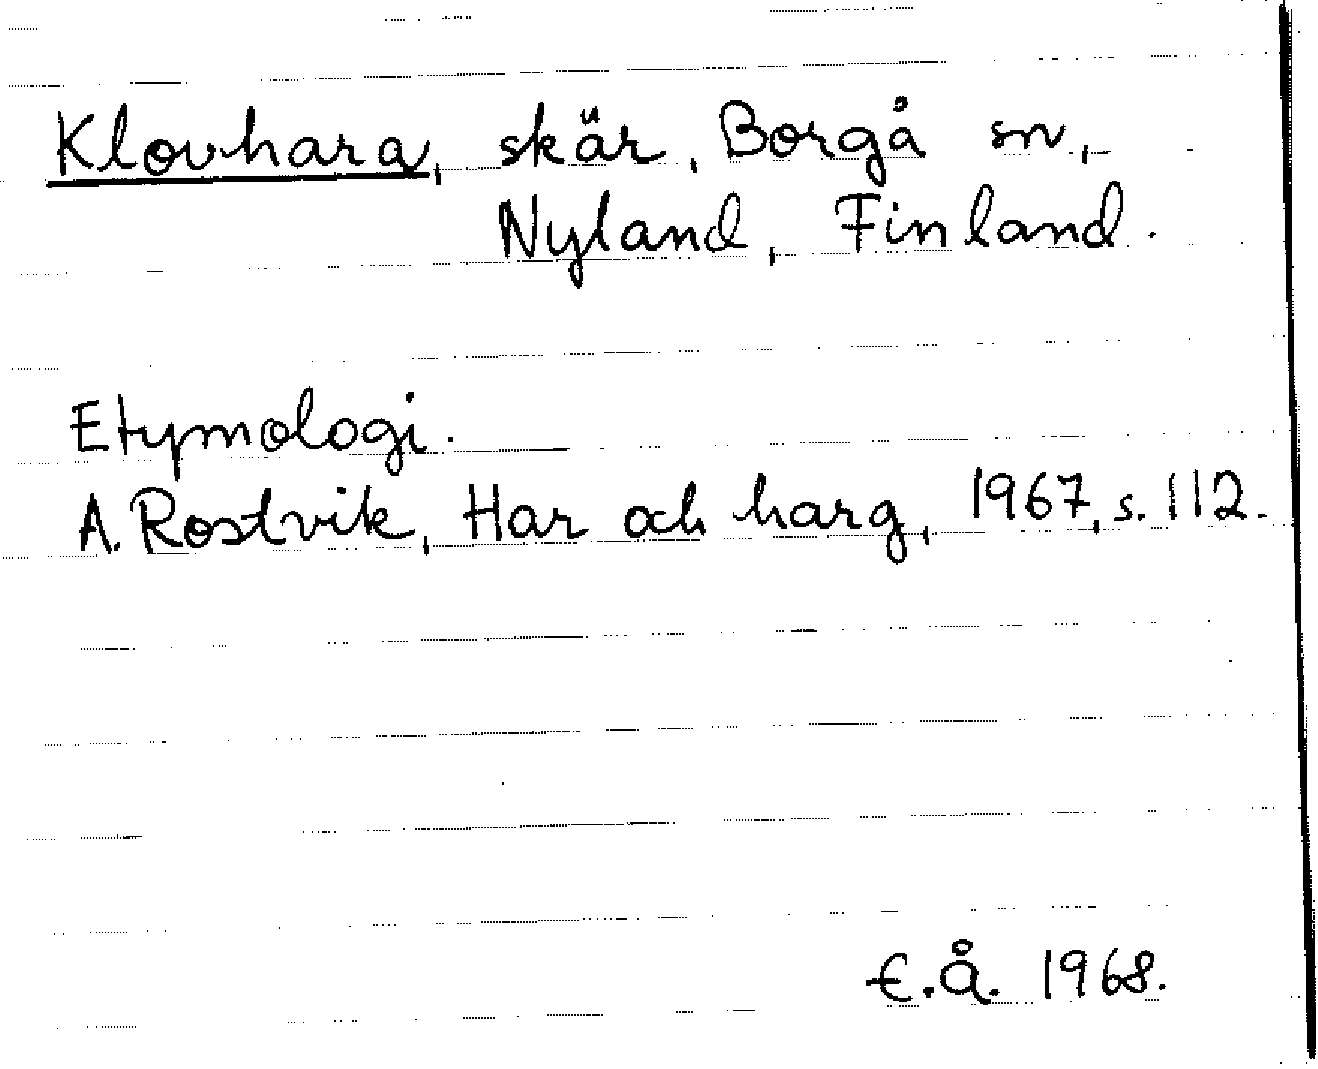 Klovhara, skär, Borgå sn,
Nyland, Finland.
Etymologi.
A. Rostvik, Har och harg, 1967, s. 112.
E.Å. 1968.